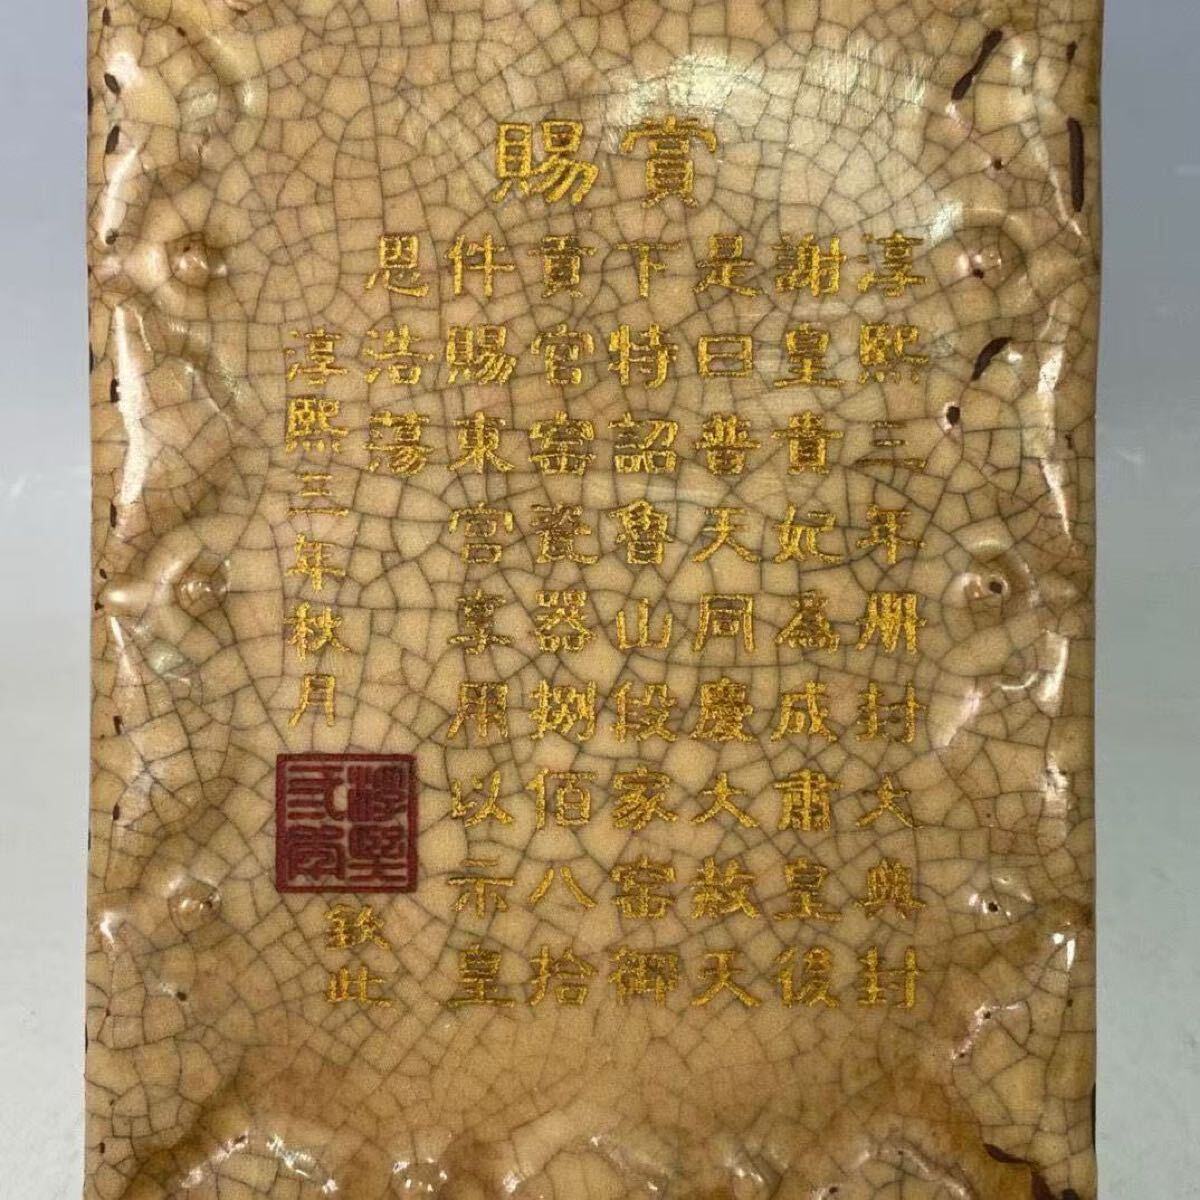 賞賜
淳熙三年册封大典封
謝皇貴妃為成肅皇後
是日普天同慶大赦天
下特詔魯山段家窑御
貢官窑瓷器捌佰八拾
件賜東宮享用以示皇
恩浩蕩
淳熙三年秋月
欽此